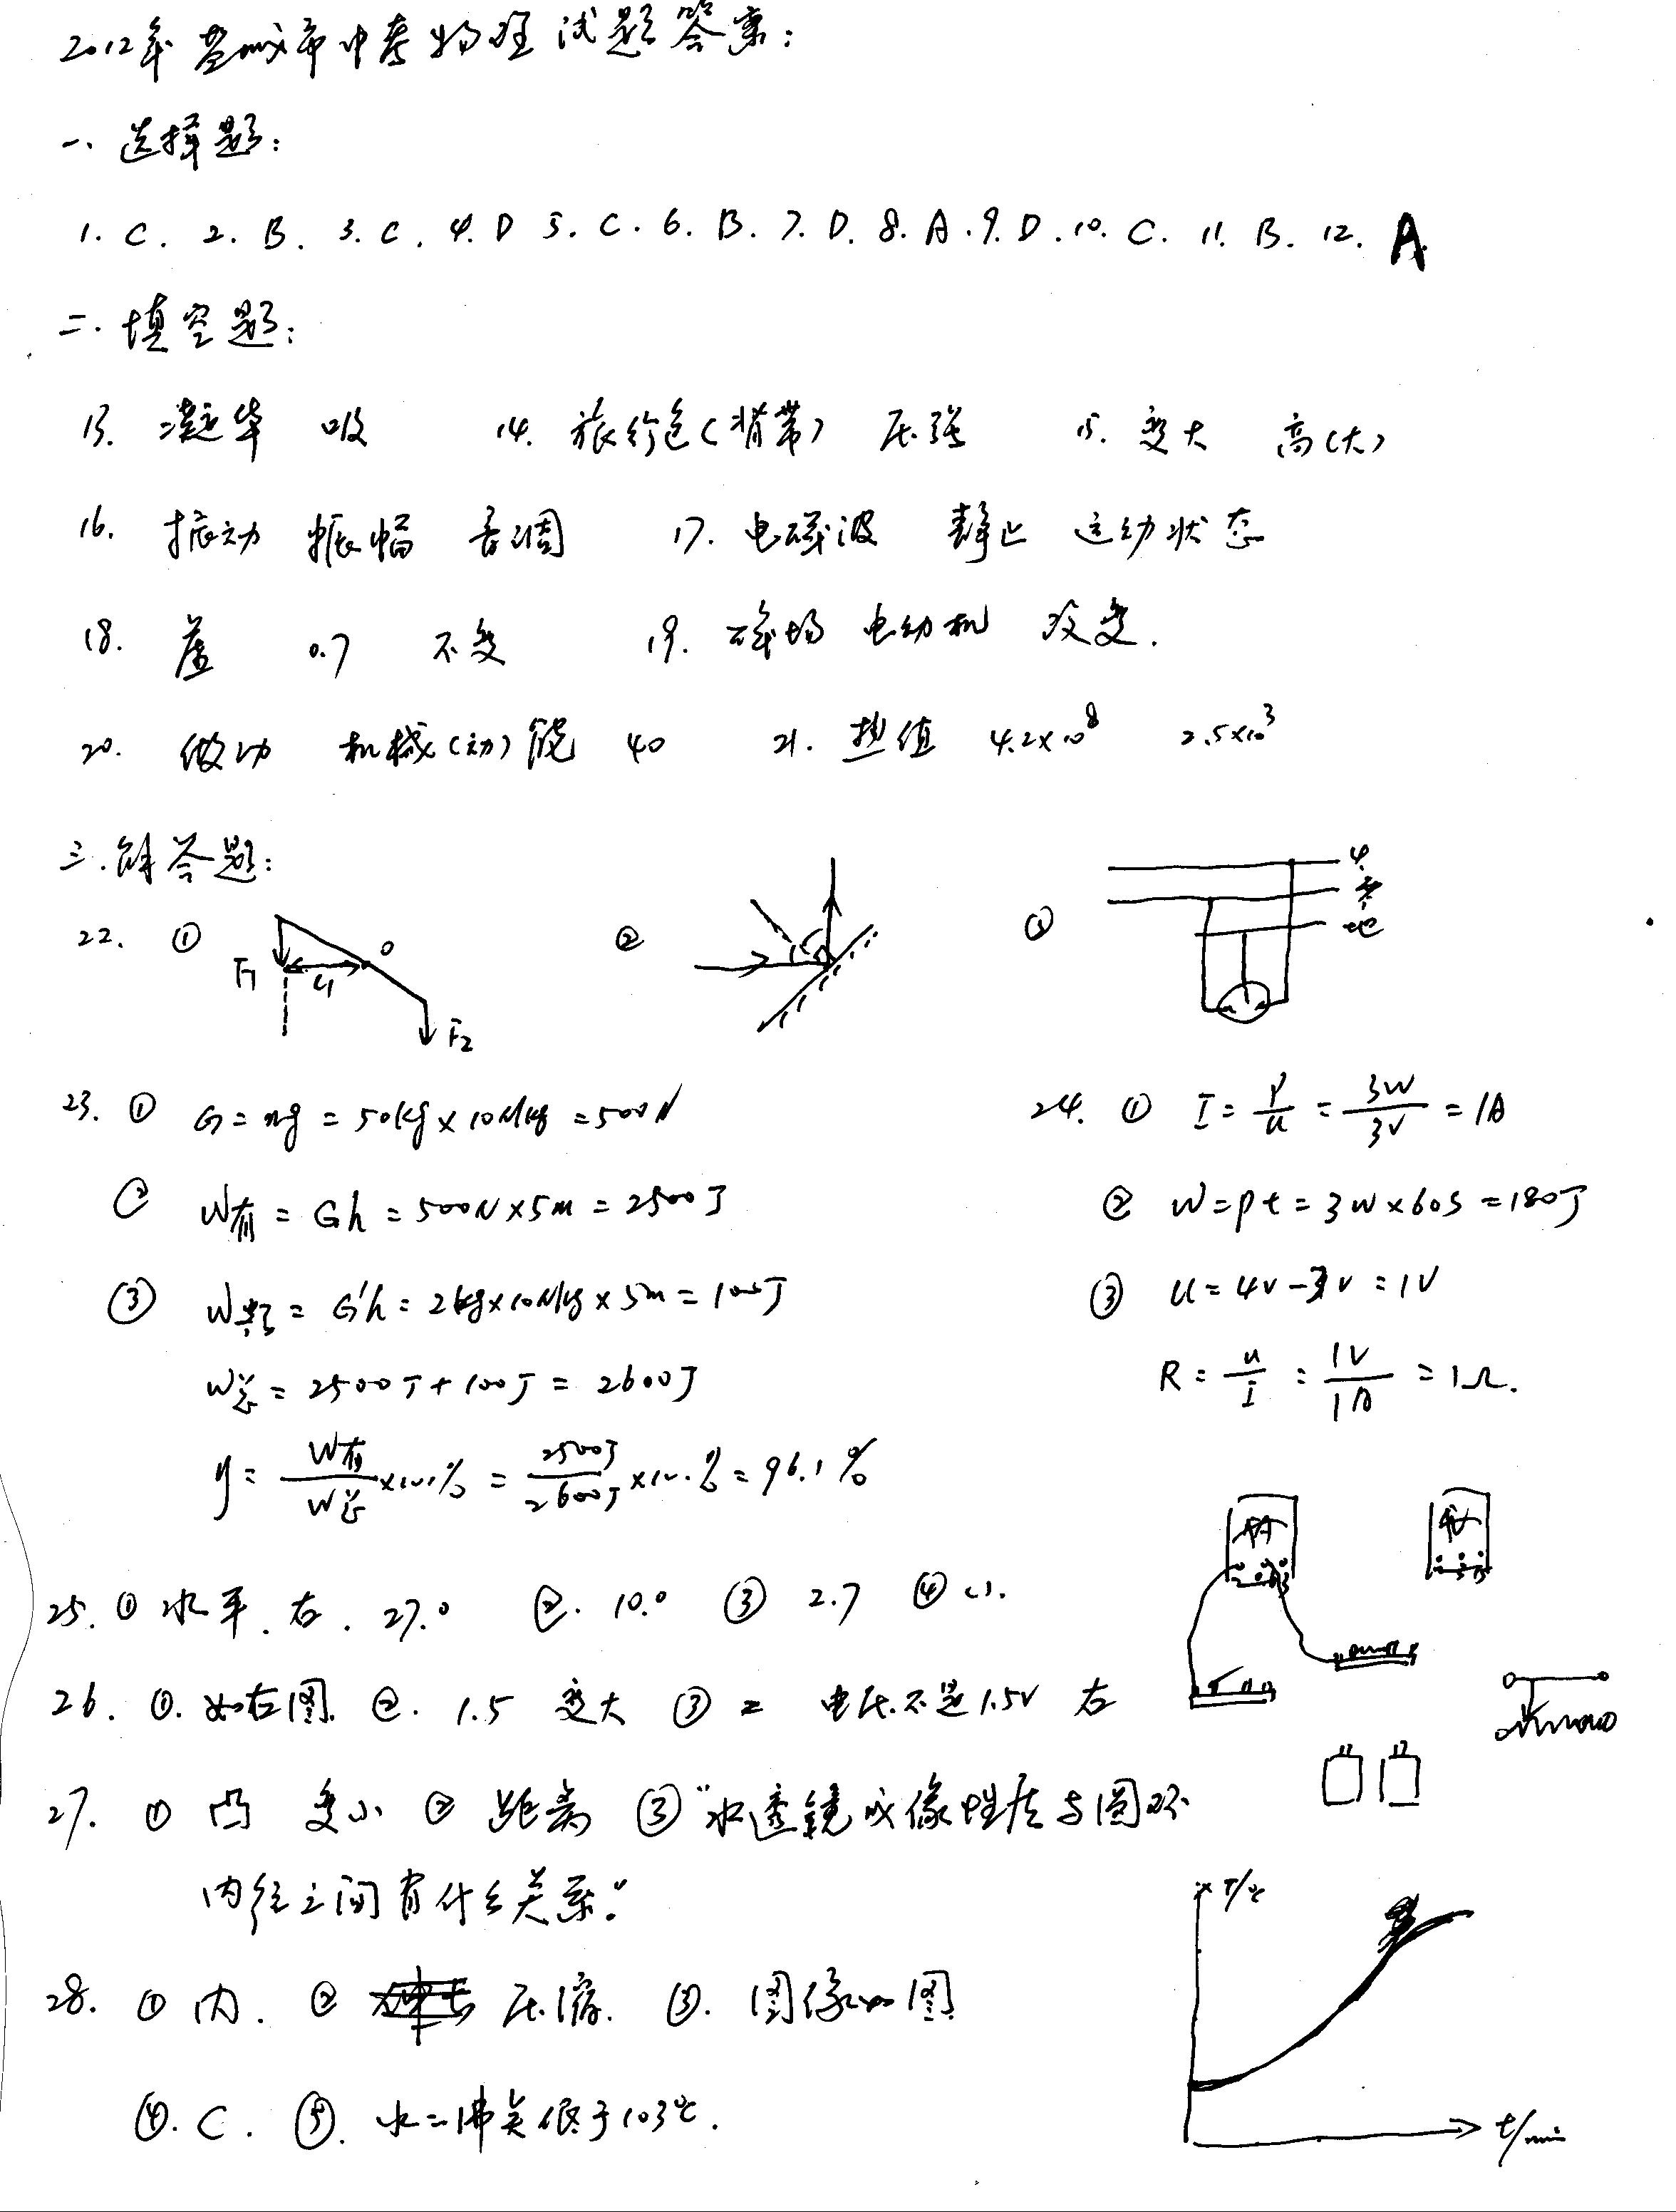 2012年盐城市中考物理试题答案:
一、选择题:
1. C. 2. B. 3. C. 4. D 5. C. 6. B. 7. D. 8. A. 9. D. 10. C. 11. B. 12. A
二. 填空题:
13. 凝华 吸 14. 旅行包(背带) 压强 15. 变大 高(大)
16. 振动 振幅 音调 17. 电磁波 静止 运动状态
18. 虚 0.7 不变 19. 磁场 电动机 改变.
20. 做功 机械(动)能 40 21. 热值 4.2×10⁸ 2.5×10³
三. 解答题:
22. ① F1 L1 O F2 ② ③ 火 零 地
23. ① G=mg=50kg×10N/kg=500N
② W有=Gh=500N×5m=2500J
③ W额=G'h=2kg×10N/kg×5m=100J
W总=2500J+100J=2600J
η=W有/W总×100%=2500J/2600J×100%=96.1%
24. ① I=P/U=3W/3V=1A
② W=Pt=3W×60s=180J
③ U=4V-3V=1V
R=U/I=1V/1A=1Ω.
25. ① 水平. 右. 27.0 ②. 10.0 ③ 2.7 ④ 小.
26. ①. 如右图. ②. 1.5 变大 ③ 2 电压不是1.5V 右
27. ① 凸 变小 ② 距离 ③ "水透镜成像性质与圆环
内径之间有什么关系."
28. ① 内. ② 压缩. ③. 图像如图
④. C. ⑤. 水的沸点低于103℃.
T/℃
t/min